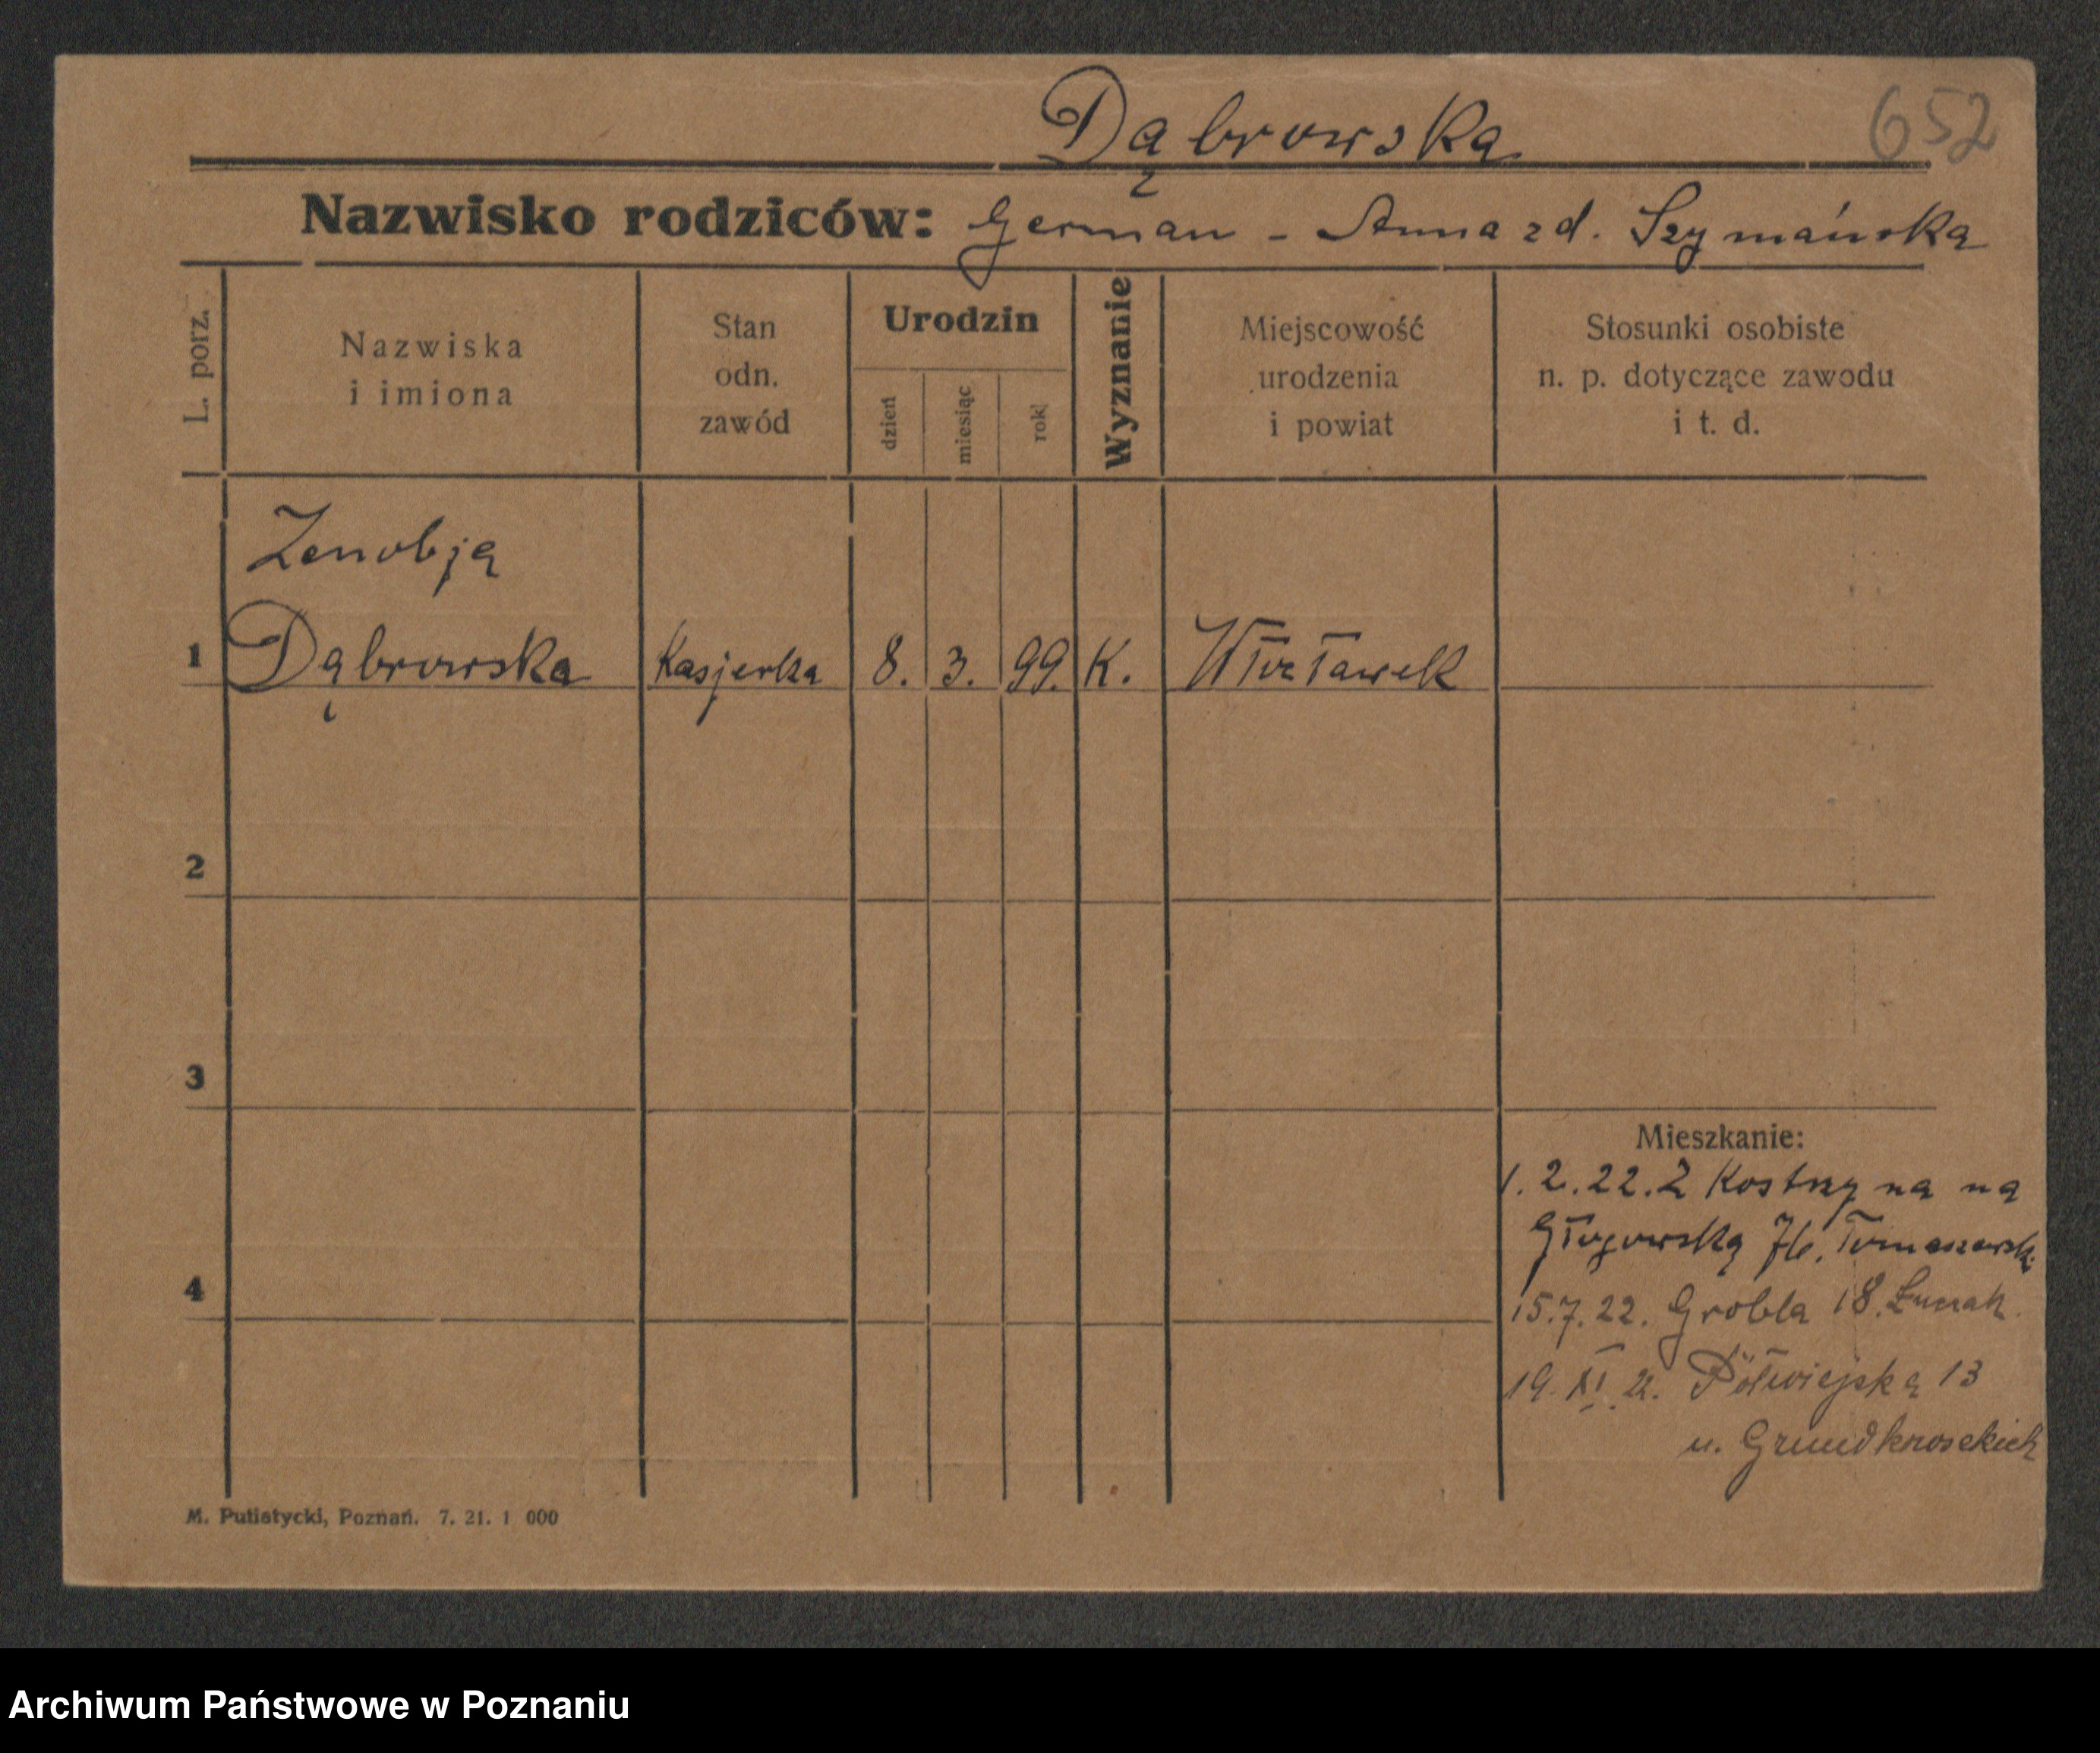 Dąbrowska
652
Nazwisko rodziców: German - Anna zd. Szymańska
L. porz.
Nazwiska
i imiona
Stan
odn.
zawód
Urodzin
dzień
miesiąc
rok
Wyznanie
Miejscowość
urodzenia
i powiat
Stosunki osobiste
n. p. dotyczące zawodu
i t. d.
Zenobja
1 Dąbrowska Kasjerka 8. 3. 99. K. Włocławek
2
3
4
Mieszkanie:
1.2.22. Z Kostrzyna na
Głogowską 76. Tomaszewsk.
15.7.22. Grobla 18.
19. XI 22. Półwiejska 13
u.
M. Putiatycki, Poznań. 7. 21. 1 000
Archiwum Państwowe w Poznaniu